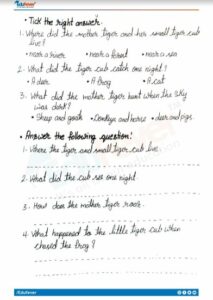 • Tick the right answer.
1. Where did the mother tiger and her small tiger cub
live?
• near a river • near a forest • near a sea
2. What did the tiger cub catch one night?
• A deer • A frog • A cat
3. What did the mother tiger hunt when the sky
was dark?
• Sheep and goats • Donkeys and horse • deer and pigs
• Answer the following question:
1. Where the tiger and small tiger cub live.
2. What did the cub see one night
3. How does the mother tiger roar.
4. What happened to the little tiger cub when
chased the frog?